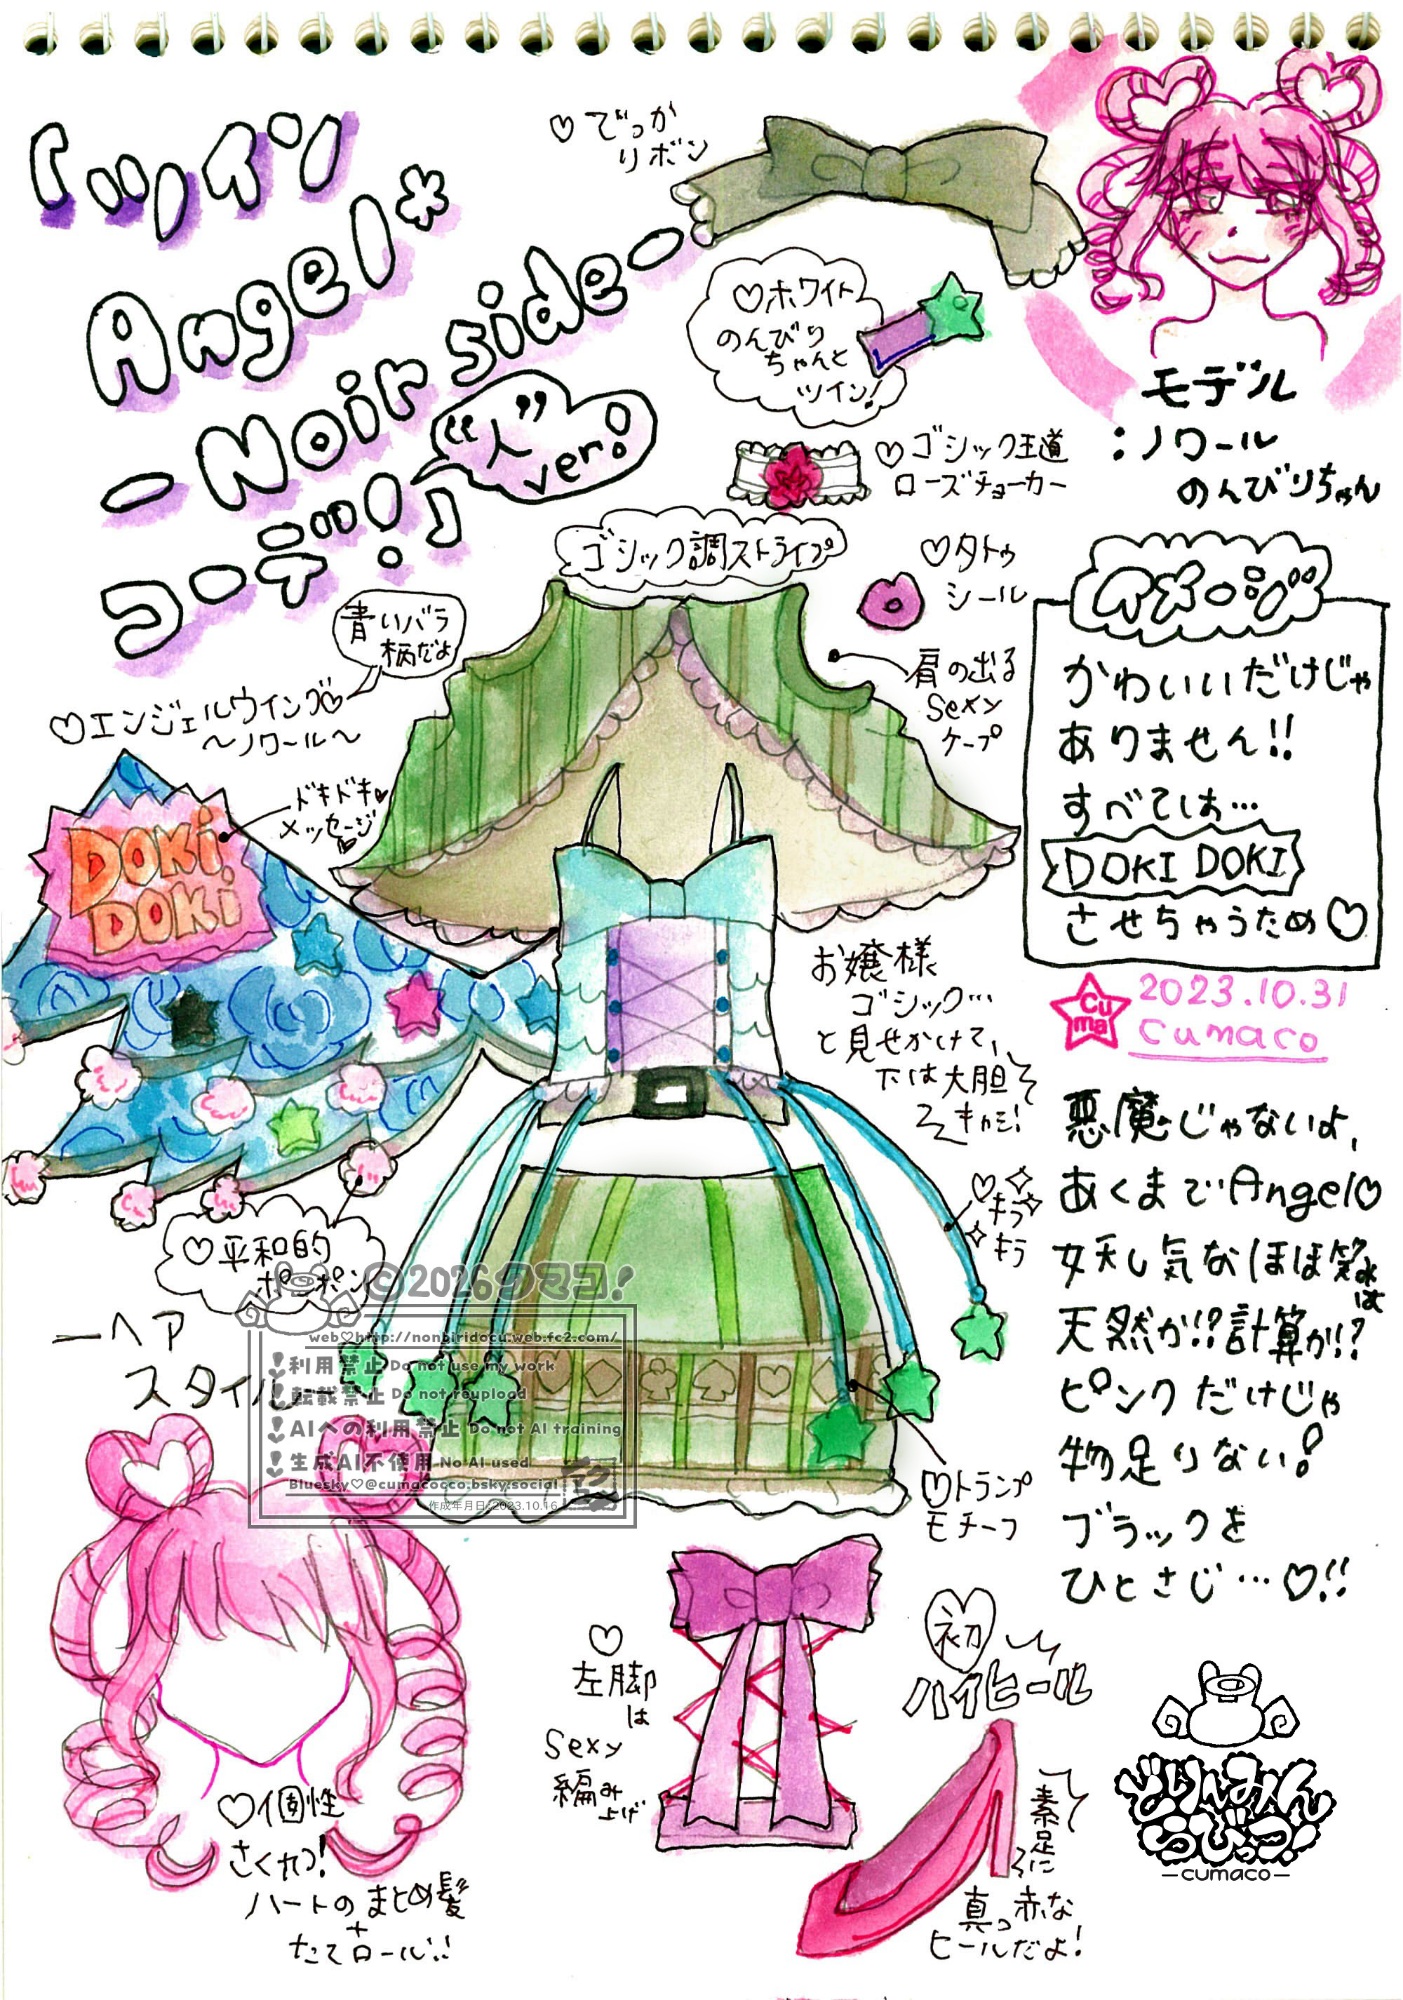 「ツイン
Angel*
-Noir side-
コーデ!」
“人”
ver!
♡でっか
リボン
♡ホワイト
のんびり
ちゃんと
ツイン!
モデル
:ノワール
のんびりちゃん
♡ゴシック王道
ローズチョーカー
ゴシック調ストライプ
♡タトゥ
シール
肩の出る
sexy
ケープ
青いバラ
柄だよ
♡エンジェルウイング♡
~ノワール~
ドキドキ♡
メッセージ♡
DOKi
DOKi
イメージ
かわいいだけじゃ
ありません!!
すべては…
DOKI DOKI
させちゃうため♡
Cu
ma
2023.10.31
cumaco
お嬢様
ゴシック…
と見せかけて、
下は大胆
スキカシ!
♡キラキラ
♡平和的
ポンポン
悪魔じゃないよ、
あくまでAngel♡
妖し気なほほ笑みは
天然か!?計算か!?
ピンクだけじゃ
物足りない!
ブラックを
ひとさじ…♡!!
©2026クマコ!
web♡http://nonbiridocu.web.fc2.com/
利用禁止 Do not use my work
転載禁止 Do not reupload
AIへの利用禁止 Do not AI training
生成AI不使用 No AI used
Bluesky♡@cumacocco.bsky.social
作成年月日:2023.10.16
ーヘア
スタイルー
♡トランプ
モチーフ
♡個性
さくれつ!
ハートのまとめ髪
+
たてロール!!
♡
左脚
は
sexy
編み
上げ
初
ハイヒール
素足に
真っ赤な
ヒールだよ!
どりーみん
らびっつ!
-cumaco-